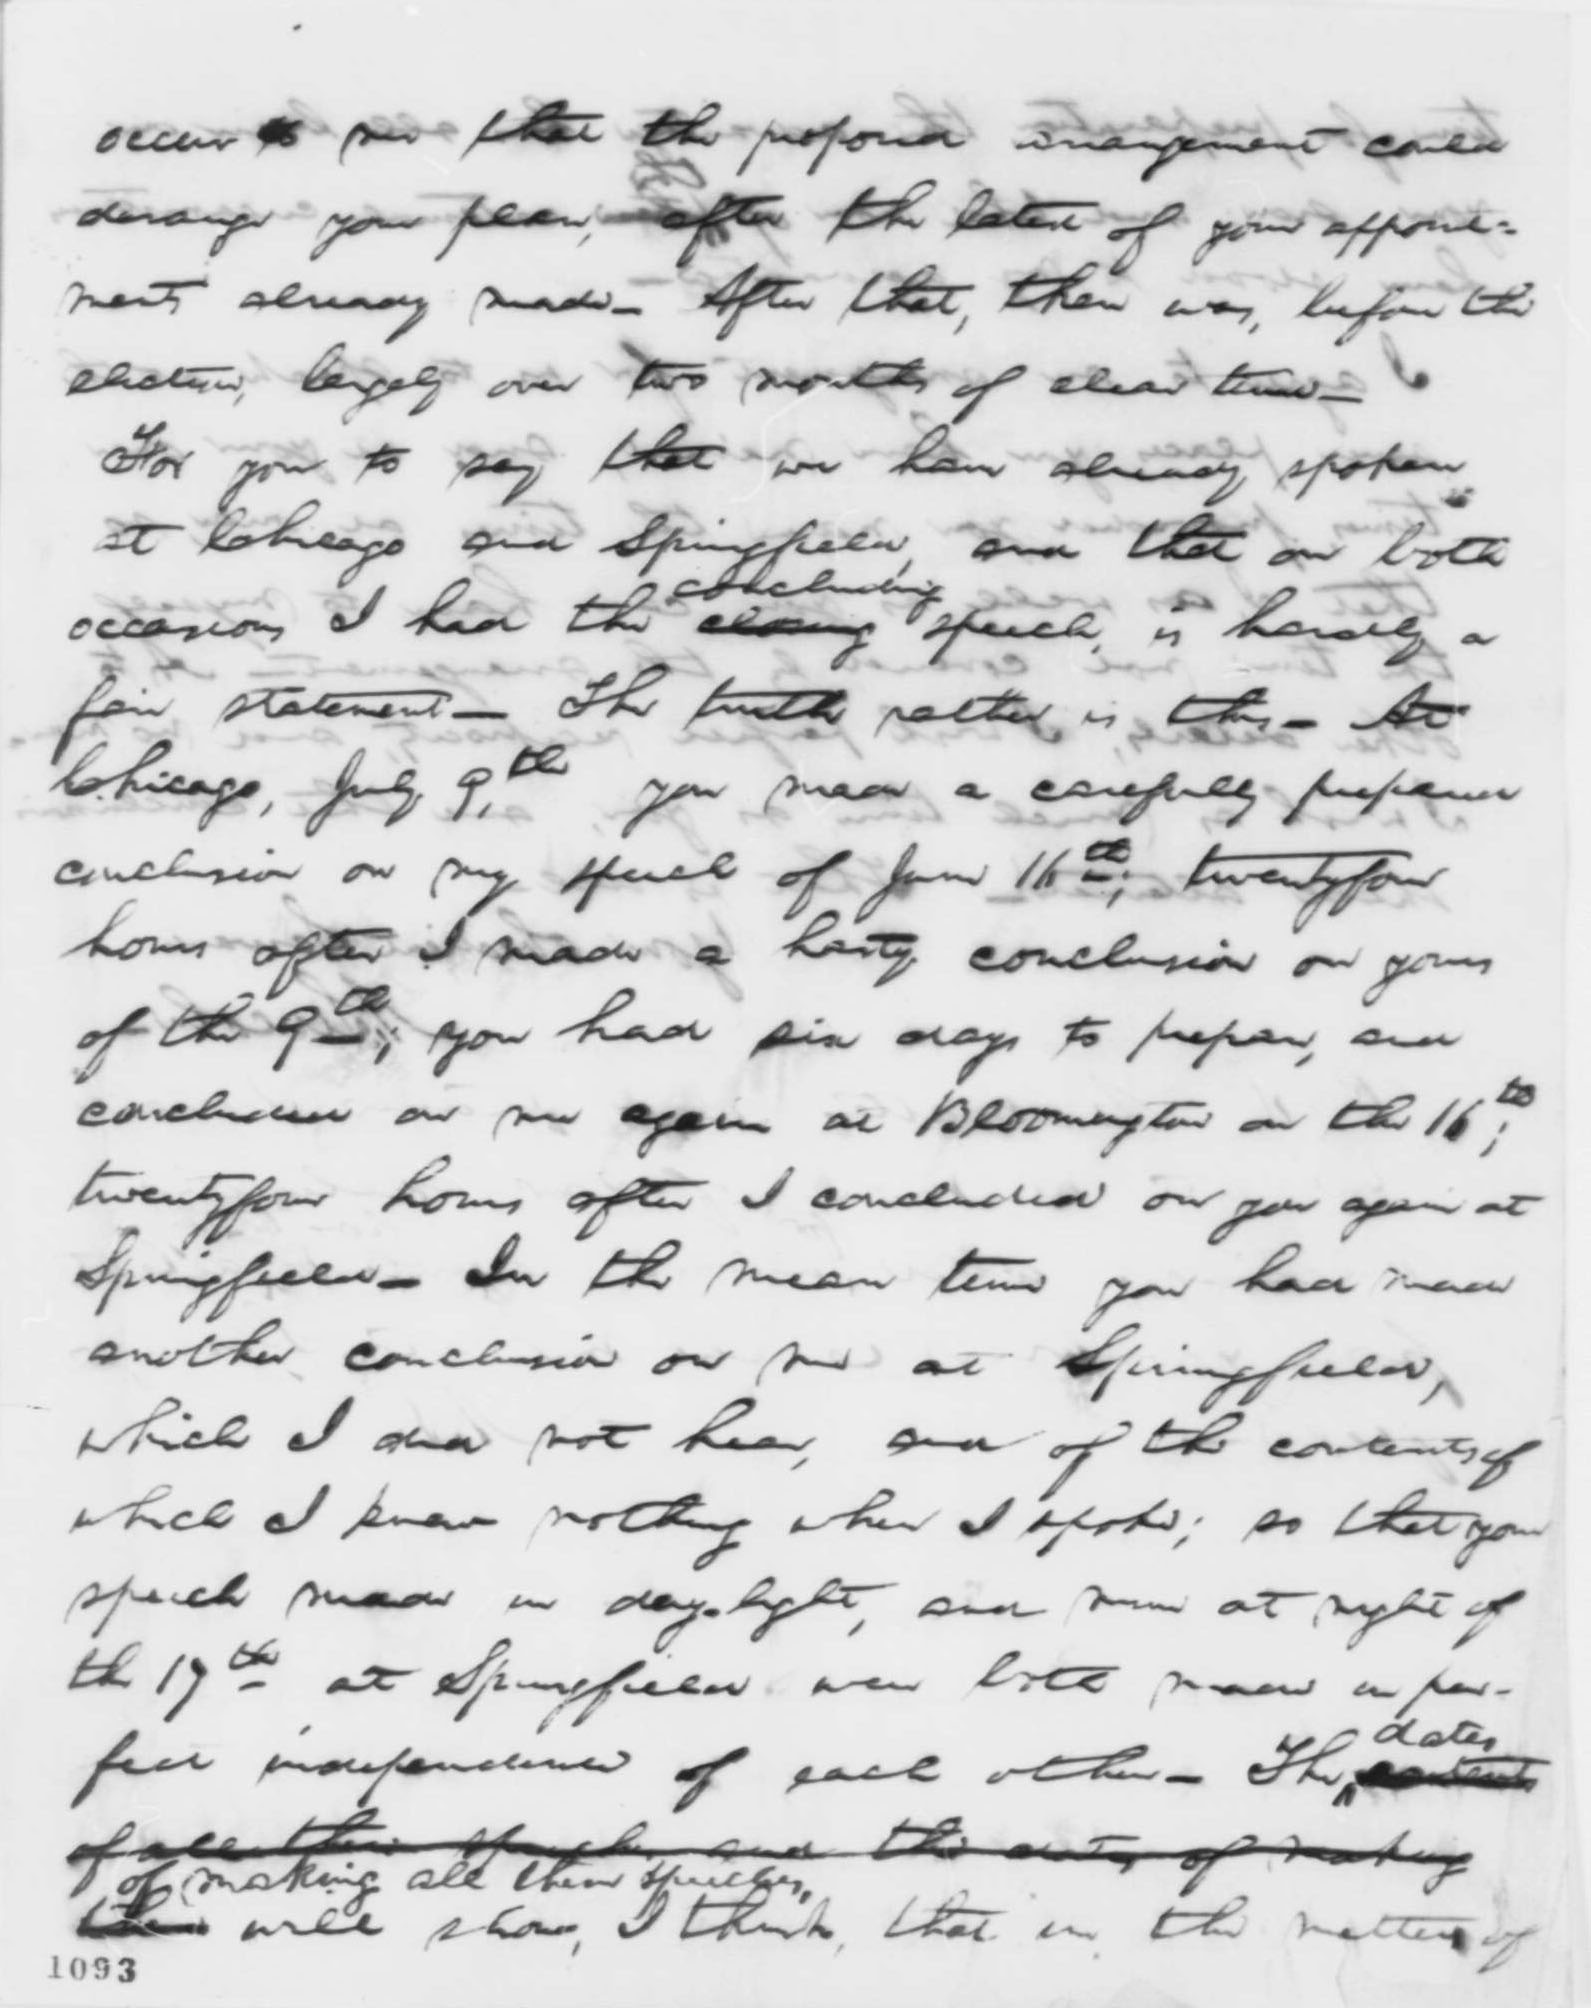 occur to me that the proposed arrangement could
derange your plan, after the latest of your appoint=
ments already made— After that, there was, before the
election, largely over two months of clear time—
For you to say that we have already spoken
at Chicago and Springfield, and that on both
concluding
occasions I had the closing speech, is hardly a
fair statement— The truth rather is this— At
Chicago, July 9,th you made a carefully prepared
conclusion on my speech of June 16th; twentyfour
hours after I made a hasty conclusion on yours
of the 9th; you had six days to prepare, and
concluded on me again at Bloomington on the 16th;
twentyfour hours after I concluded on you again at
Springfield— In the mean time you had made
another conclusion on me at Springfield,
which I did not hear, and of the contents of
which I knew nothing when I spoke; so that your
speech made in day-light, and mine at night of
the 17th at Springfield were both made in per-
dates
fect independence of each other— The contents
of all these speeches and the dates of making
of making all these speeches,
them will show, I think, that in the matter of
1093